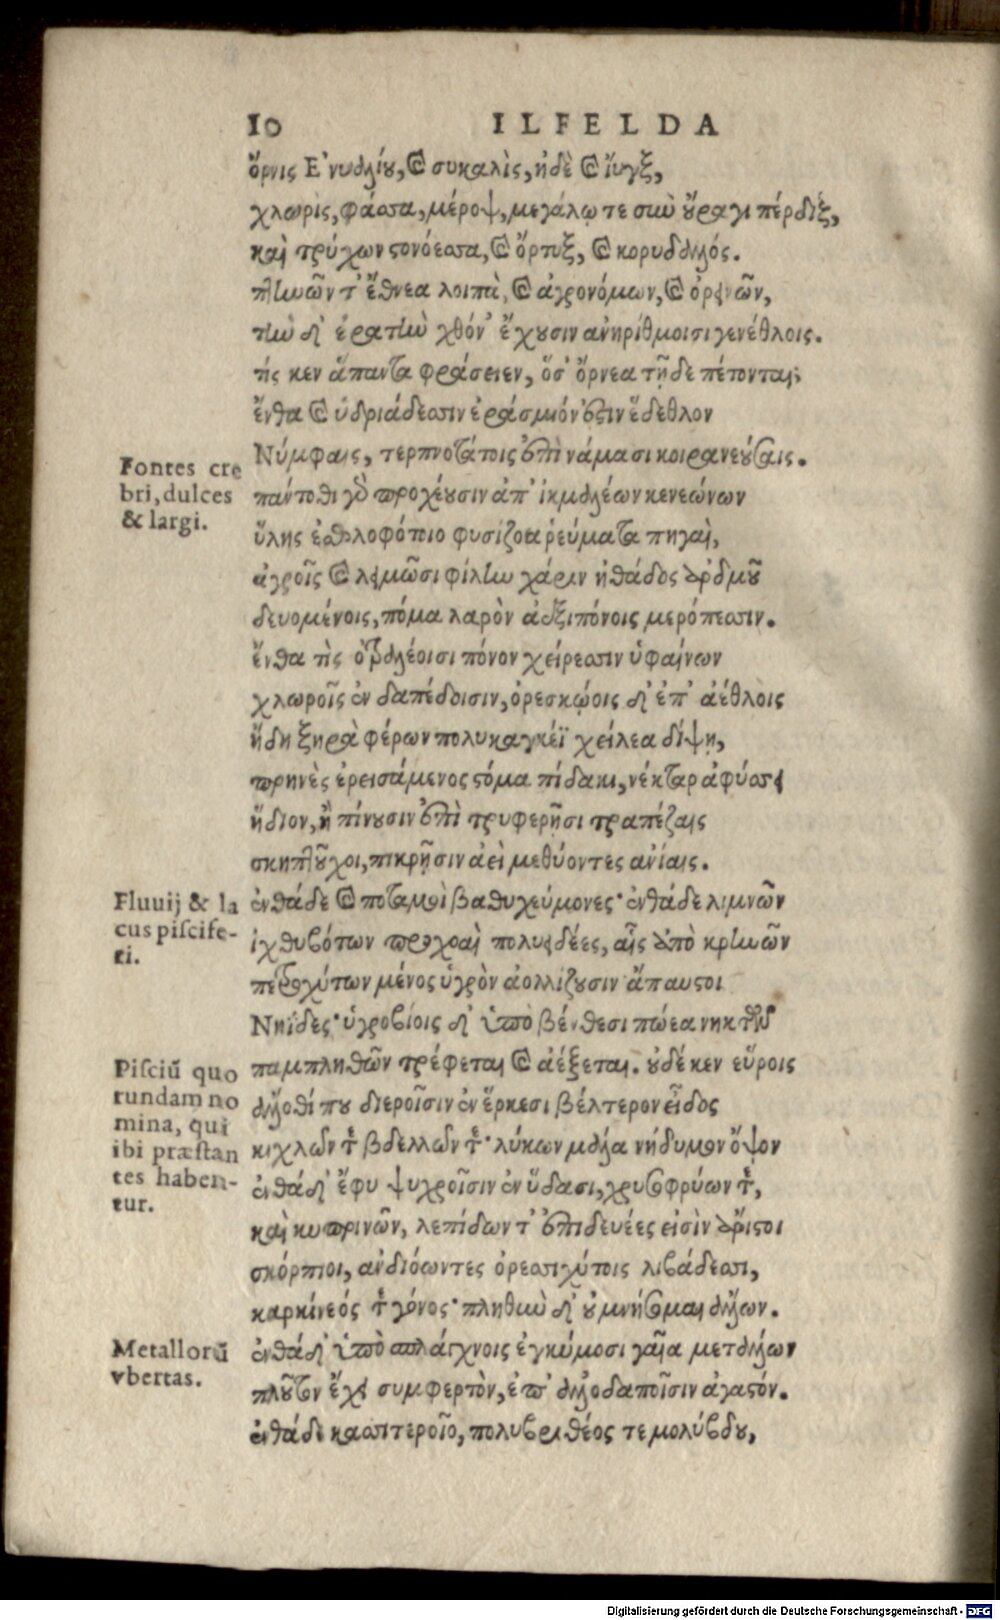 10 ILFELDA
ὄρνις Ἐνυαλίου, καὶ συκαλὶς, ἠδὲ καὶ ἴυγξ,
χλωρὶς, φάσσα, μέροψ, μεγάλῳ τε σὺν οὔραγι πέρδιξ,
καὶ τρύχων στονόεσσα, καὶ ὄρτυξ, καὶ κορυδαλός.
πτηνῶν τ' ἔθνεα λοιπὰ, καὶ ἀγρονόμων, καὶ ὀρεινῶν,
τὴν δ' ἐρατὴν χθόν' ἔχουσιν ἀνηρίθμοισι γενέθλοις.
τίς κεν ἅπαντα φράσειεν, ὅσ' ὄρνεα τῇδε πέτονται;
ἔνθα καὶ ὑδριάδεσσιν ἐράσμιόν ἐστιν ἕδεθλον
Fontes cre
bri, dulces
& largi.
Νύμφαις, τερπνοτάτοις ἐπὶ νάμασι κοιρανεύσαις.
πάντοθι γὰρ προχέουσιν ἀπ' ἰκμαλέων κενεώνων
ὕλης ἐσθλοφόποιο φυσίζοα ῥεύματα πηγαὶ,
ἀγροῖς καὶ λειμῶσι φίλην χάριν ἠθάδος ἀρδμοῦ
δευομένοις, πόμα λαρὸν ἀεξιπόνοις μερόπεσσιν.
ἔνθα τὶς ὀτραλέοισι πόνον χείρεσσιν ὑφαίνων
χλωροῖς ἐν δαπέδοισιν, ὀρεσκῴοις δ' ἐπ' ἀέθλοις
ἤδη ξηρὰ φέρων πολυκαγκέϊ χείλεα δίψῃ,
πρηνὲς ἐρεισάμενος στόμα πίδακι, νέκταρ ἀφύσσει
ἥδιον, ἢ πίνουσιν ἐπὶ τρυφερῇσι τραπέζαις
σκηπτοῦχοι, πικρῇσιν ἀεὶ μεθύοντες ἀνίαις.
Fluuij & la
cus piſcife-
ri.
ἐνθάδε καὶ ποταμοὶ βαθυχεύμονες· ἐνθάδε λιμνῶν
ἰχθυβότων προχοαὶ πολυειδέες, αἷς ἀπὸ κρηνῶν
πετροχύτων μένος ὑγρὸν ἀολλίζουσιν ἄπαυστοι
Νηΐδες· ὑγροβίοις δ' ὑπὸ βένθεσι πώεα νηκτῶν
Piſciū quo
rundam no
mina, qui
ibi præſtan
tes haben-
tur.
παμπληθῶν τρέφεται καὶ ἀέξεται. οὐδέ κεν εὕροις
ἄλλοθί που διεροῖσιν ἐν ἕρκεσι βέλτερον εἶδος
κιχλῶν τε βδελλῶν τε· λύκων μάλα νήδυμον ὄψον
ἐνθάδ' ἔφυ ψυχροῖσιν ἐν ὕδασι, χρυσοφρύων τε,
καὶ κυπρινῶν, λεπίδων τ' ἐπιδευέες εἰσὶν ἄριστοι
σκόρπιοι, αὐδιόωντες ὀρεσσιχύτοις λιβάδεσσι,
καρκίνεός τε γόνος· πληθὺν δ' οὐ μνήσομαι ἄλλων.
Metallorū
vbertas.
ἐνθάδ' ὑπὸ σπλάγχνοις ἐγκύμοσι γαῖα μετάλλων
πλοῦτον ἔχει συμφερτὸν, ἐπ' ἀλλοδαποῖσιν ἀγαστόν.
ἐνθάδε κασσιτεροῖο, πολυβριθέος τε μολύβδου,
Digitalisierung gefördert durch die Deutsche Forschungsgemeinschaft - DFG